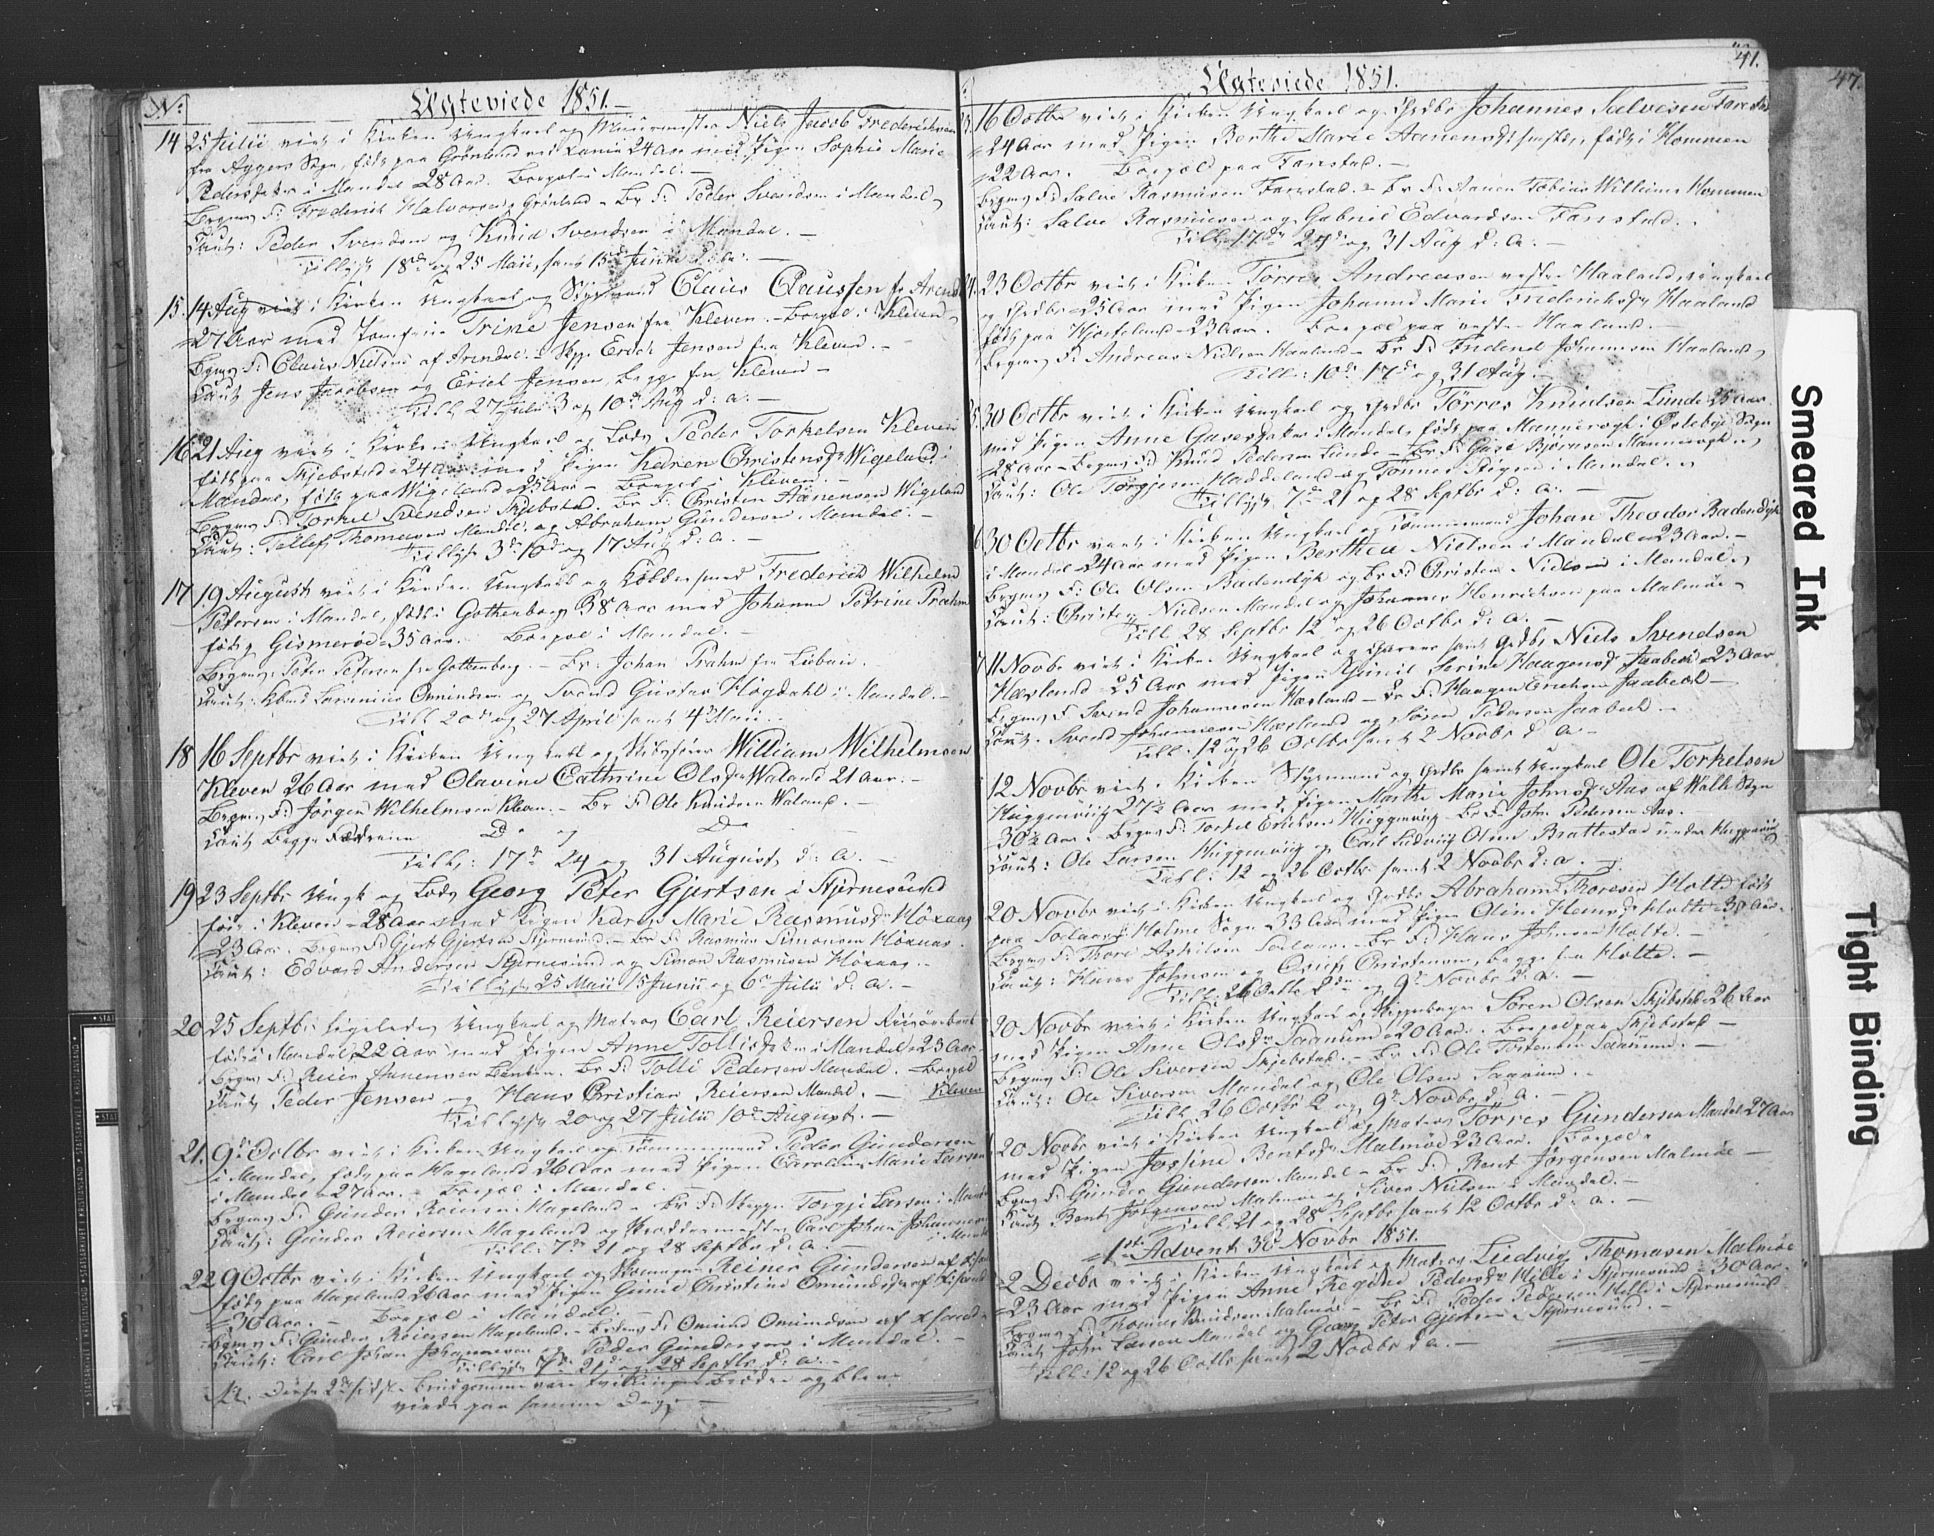 Ægteviede 1851.
No.
14 25 Julii viet i Kirken Ungkarl og Muurmester Niels Jacob Frederichsen
fra Aggers Sogn, født paa Grønland ved 24 Aar med Pigen Sophie Marie
Pedersdatter i Mandal 28 Aar. Boepæl i Mandal. —
Brgms F: Frederich Halvorsen, Grønland – Br F: Peder Svendsen i Mandal,
Caut: Peder Svendsen og Knud Svendsen i Mandal. —
Tillyst 18de og 25 Maii, samt 15de Junii d: a: —
15. 14 Aug viet i Kirken Ungkarl og Styrmand Claus Claussen fr Arendal
27 Aar med Jomfrue Trine Jensen fra Kleven. – Boepæl i Kleven,
Brgms F: Claus Nielsen af Arendal. – Br F: Erich Jensen fra Kleven. —
Caut Jens Jacobsen og Erich Jensen, begge fra Kleven —
Till: 27 Julii 3 og 10de Aug d: a: —
16 21 Aug viet i Kirken Ungkarl og Lods Peder Torkelsen Kleven
født paa Skjebstad 24 Aar med Pigen Karen Christensdr Wigeland i
Mandal, født paa Wigeland 25 Aar – Boepæl i Kleven. —
Brgms F: Torkel Svendsen Skjebstad. Br F: Christen Aanensen Wigeland
Caut: Tellef Thomassen Mandal og Abraham Gundersen Mandal. —
Tillyst 3de 10de og 17 Aug d: a. —
17 19 August viet i Kirken Ungkarl og Frederich Wilhelm
Petersen i Mandal, født i Gothenborg 38 Aar med Johanne Petrine Prahm
født Gismerøe 35 Aar. Boepæl i Mandal. —
Brgms: Peter Petersen fra Gothenborg. – Br: Johan Prahm fra
Caut: Omundsen og Svend Gustav Høgdahl i Mandal. —
Till 20de og 27 April samt 4de Maii. —
18 16 Septbr viet i Kirken Ungkarl og William Wilhelmsen
Kleven 26 Aar med Olavine Cathrine Olsdr Waland 21 Aar. —
Brgms F: Jørgen Wilhelmsen Kleven. – Br F: Ole Knudsen Waland. —
Caut Begge Fædrene Do og Do
Till: 17de 24 og 31 August, d: a. —
19 23 Septbr Ungk og Lods Georg Peter Gjertsen i Stjernesund
født i Kleven 28 Aar med Pigen Karen Marie Rasmusdr Høxaas
23 Aar. Brgms F: Gjert Gjertsen Stjernesund. – Br F: Rasmus Simonsen Høxaas
Caut: Edvard Andersen Stjernesund og Simon Rasmusen Høxaas. —
Tillyst 25 Maii 15 Junii og 6te Julii d: a. —
20 25 Septbr: ligeledes Ungkarl og Matros Carl Reiersen
født i Mandal 22 Aar med Pigen Anne Tollisdr i Mandal 23 Aar
Brgms F: Reier Aanensen Br F: Tolli Pedersen Mandal. Boepæl
Caut Peder Jensen og Hans Christian Reiersen Mandal. — Kleven
Tillyst 20 og 27 Julii 10de August. —
21. 9de Octbr viet i Kirken Ungkarl og Tømmermand Peder Gundersen
i Mandal, født paa Hageland 26 Aar med Pigen Caroline Marie Larsen
i Mandal 27 Aar. – Boepæl i Mandal. —
Brgms F: Gunder Reiersen Hageland – Br F: Torgje Larsen i Mandal
Caut: Gunder Reiersen Hageland og Skræddermester Carl Johan Johannesen
i Mandal
Till: 7de 21 og 28 Septbr d: a. —
22. 9 Octbr viet i Kirken Ungkarl og Reiner Gundersen af
født paa Hageland 26 Aar med Pigen Christine Omundsdr af
30 Aar. – Boepæl i Mandal. —
Brgms F: Gunder Reiersen Hageland. – Brudens F: Omund Omundsen af
Caut: Carl Johan Johannesen og Peder Gundersen i Mandal. —
Tillyst 7de 21 og 28 Septbr d: a. —
NB. Disse 2de sidste Brudgomme vare Tvillinge Brødre og bleve
viede paa samme Dag. —
Ægteviede 1851.
41.
47.
16 Octbr viet i Kirken Ungkarl og Grdbr Johannes Salvesen
24 Aar med Pigen Berthe Marie Aanensdr født i Hommen
22 Aar. Boepæl paa Fanstad. —
Brgms F: Salve Rasmusen Fanestad. – Br F: Aanen Tobias Williams Hommen
Caut: Salve Rasmusen og Gabriel Edvardsen Fanstad. —
Till: 17de 24de og 31 Aug d: a. —
23 Octbr viet i Kirken Tørres Andreasen vestre Haaland, Ungkarl
og Grdbr 25 Aar med Pigen Johanne Marie Frederichsdr Haaland
født paa Hjorteland 23 Aar. Boepæl paa vestre Haaland. —
Brgms F: Andreas Nielsen Haaland – Br F: Frederik Johannesen Haaland
Till: 10de 17de og 31 Aug. —
30 Octbr viet i Kirken Ungkarl og Grdbr Tørres Knudsen Lunde 25 Aar
med Pigen Anne Gasesdatter i Mandal, født paa Mannevigk i Øslebøe Sogn
28 Aar – Brgms F: Knud Pedersen Lunde – Br F: Gase Bjørnsen Mannevigk
Caut: Ole Torgjesen Haddeland og Tønnes i Mandal. —
Tillyst 7de 21 og 28 Septbr d: a. —
30 Octbr viet i Kirken Ungkarl og Tømmermand Johan Theodor Badendÿk
i Mandal 24 Aar med Pigen Berthea Nielsen i Mandal 23 Aar. —
Brgms F: Ole Olsen Badendÿk og Br F: Christen Nielsen i Mandal
Caut: Christen Nielsen Mandal og Johannes Henrichsen paa Malmøe
Till 28 Septbr 12 og 26 Octbr d: a. —
11 Novbr viet i Kirken Ungkarl og samt Grdbr Niels Svendsen
Hæsland 25 Aar med Pigen Gunild Serine Haagensdr Jaabech 23 Aar
Brgms F Svend Johannesen Hæsland – Br F: Haagen Jaabech —
Caut. Svend Johannesen Hæsland og Søren Pedersen Jaabech —
Till: 12 og 26 Octbr samt 2 Novbr d a. —
12 Novbr viet i Kirken Styrmand og Grdbr samt Ungkarl Ole Torkelsen
Huggenvig 27½ Aar med Pigen Marthe Marie Johnsdr Aas af Walle Sogn
30½ Aar. Brgms F: Torkel Erichsen Huggenvig – Br F: John Pedersen Aas.
Caut: Ole Larsen Huggenvig og Carl Ludvig Olsen Brattestøe under Huggenvig
Till: 12 og 26 Octbr samt 2 Novbr d: a. —
20 Novbr viet i Kirken Ungkarl og Grdbr Abraham Thoresen Holte født
paa i Holme Sogn 33 Aar med Pigen Oline Hansdr Holte 30 Aar.
Brgms F: Thore – Br F: Hans Johnsen Holte. —
Caut: Hans Johnsen og Christensen, begge fra Holte. —
Till: 26 Octbr 2de og 9de Novbr d. a. —
20 Novbr viet i Kirken Ungkarl og Skippbygger Søren Olsen Skjebstad 26 Aar
med Pigen Anne Olsdr Saanum 20 Aar. Boepæl paa Skjebstad —
Brgms F: Ole Siversen Skjebstad. – Br F: Ole Torstensen Saanum. —
Caut: Ole Siversen Mandal og Ole Olsen Saanum. —
Till 26 Octbr 2 og 9de Novbr d: A. —
20 Novbr viet i Kirken Ungkarl og Matros Tørres Gundersen Mandal 27 Aar
med Pigen Jossine Bentsdr Malmøe 23 Aar. Boepæl
Brgms F: Gunder Gundersen Mandal – Br F: Bent Jørgensen Malmøe —
Caut Bent Jørgensen Malmøe og Siver Nielsen i Mandal. —
Till: 21 og 28 Septbr samt 12 Octbr d: a. —
1ste Advent 30 Novbr 1851.
2 Decbr viet i Kirken Ungkarl og Matros Ludvig Thomasen Malmøe
23 Aar med Pigen Anne Regine Pedersdr Hille i Stjernesund 30 Aar.
Brgms F: Thomas Knudsen Malmøe – Br F: Peder Pedersen Hille i Stjernesund
Caut John Larsen Mandal og Georg Peter Gjertsen i Stjernesund. —
Till: 12 og 26 Octbr samt 2 Novbr d a. —
Smeared Ink
Tight Binding
STATSARKIVET I KRISTIANSAND